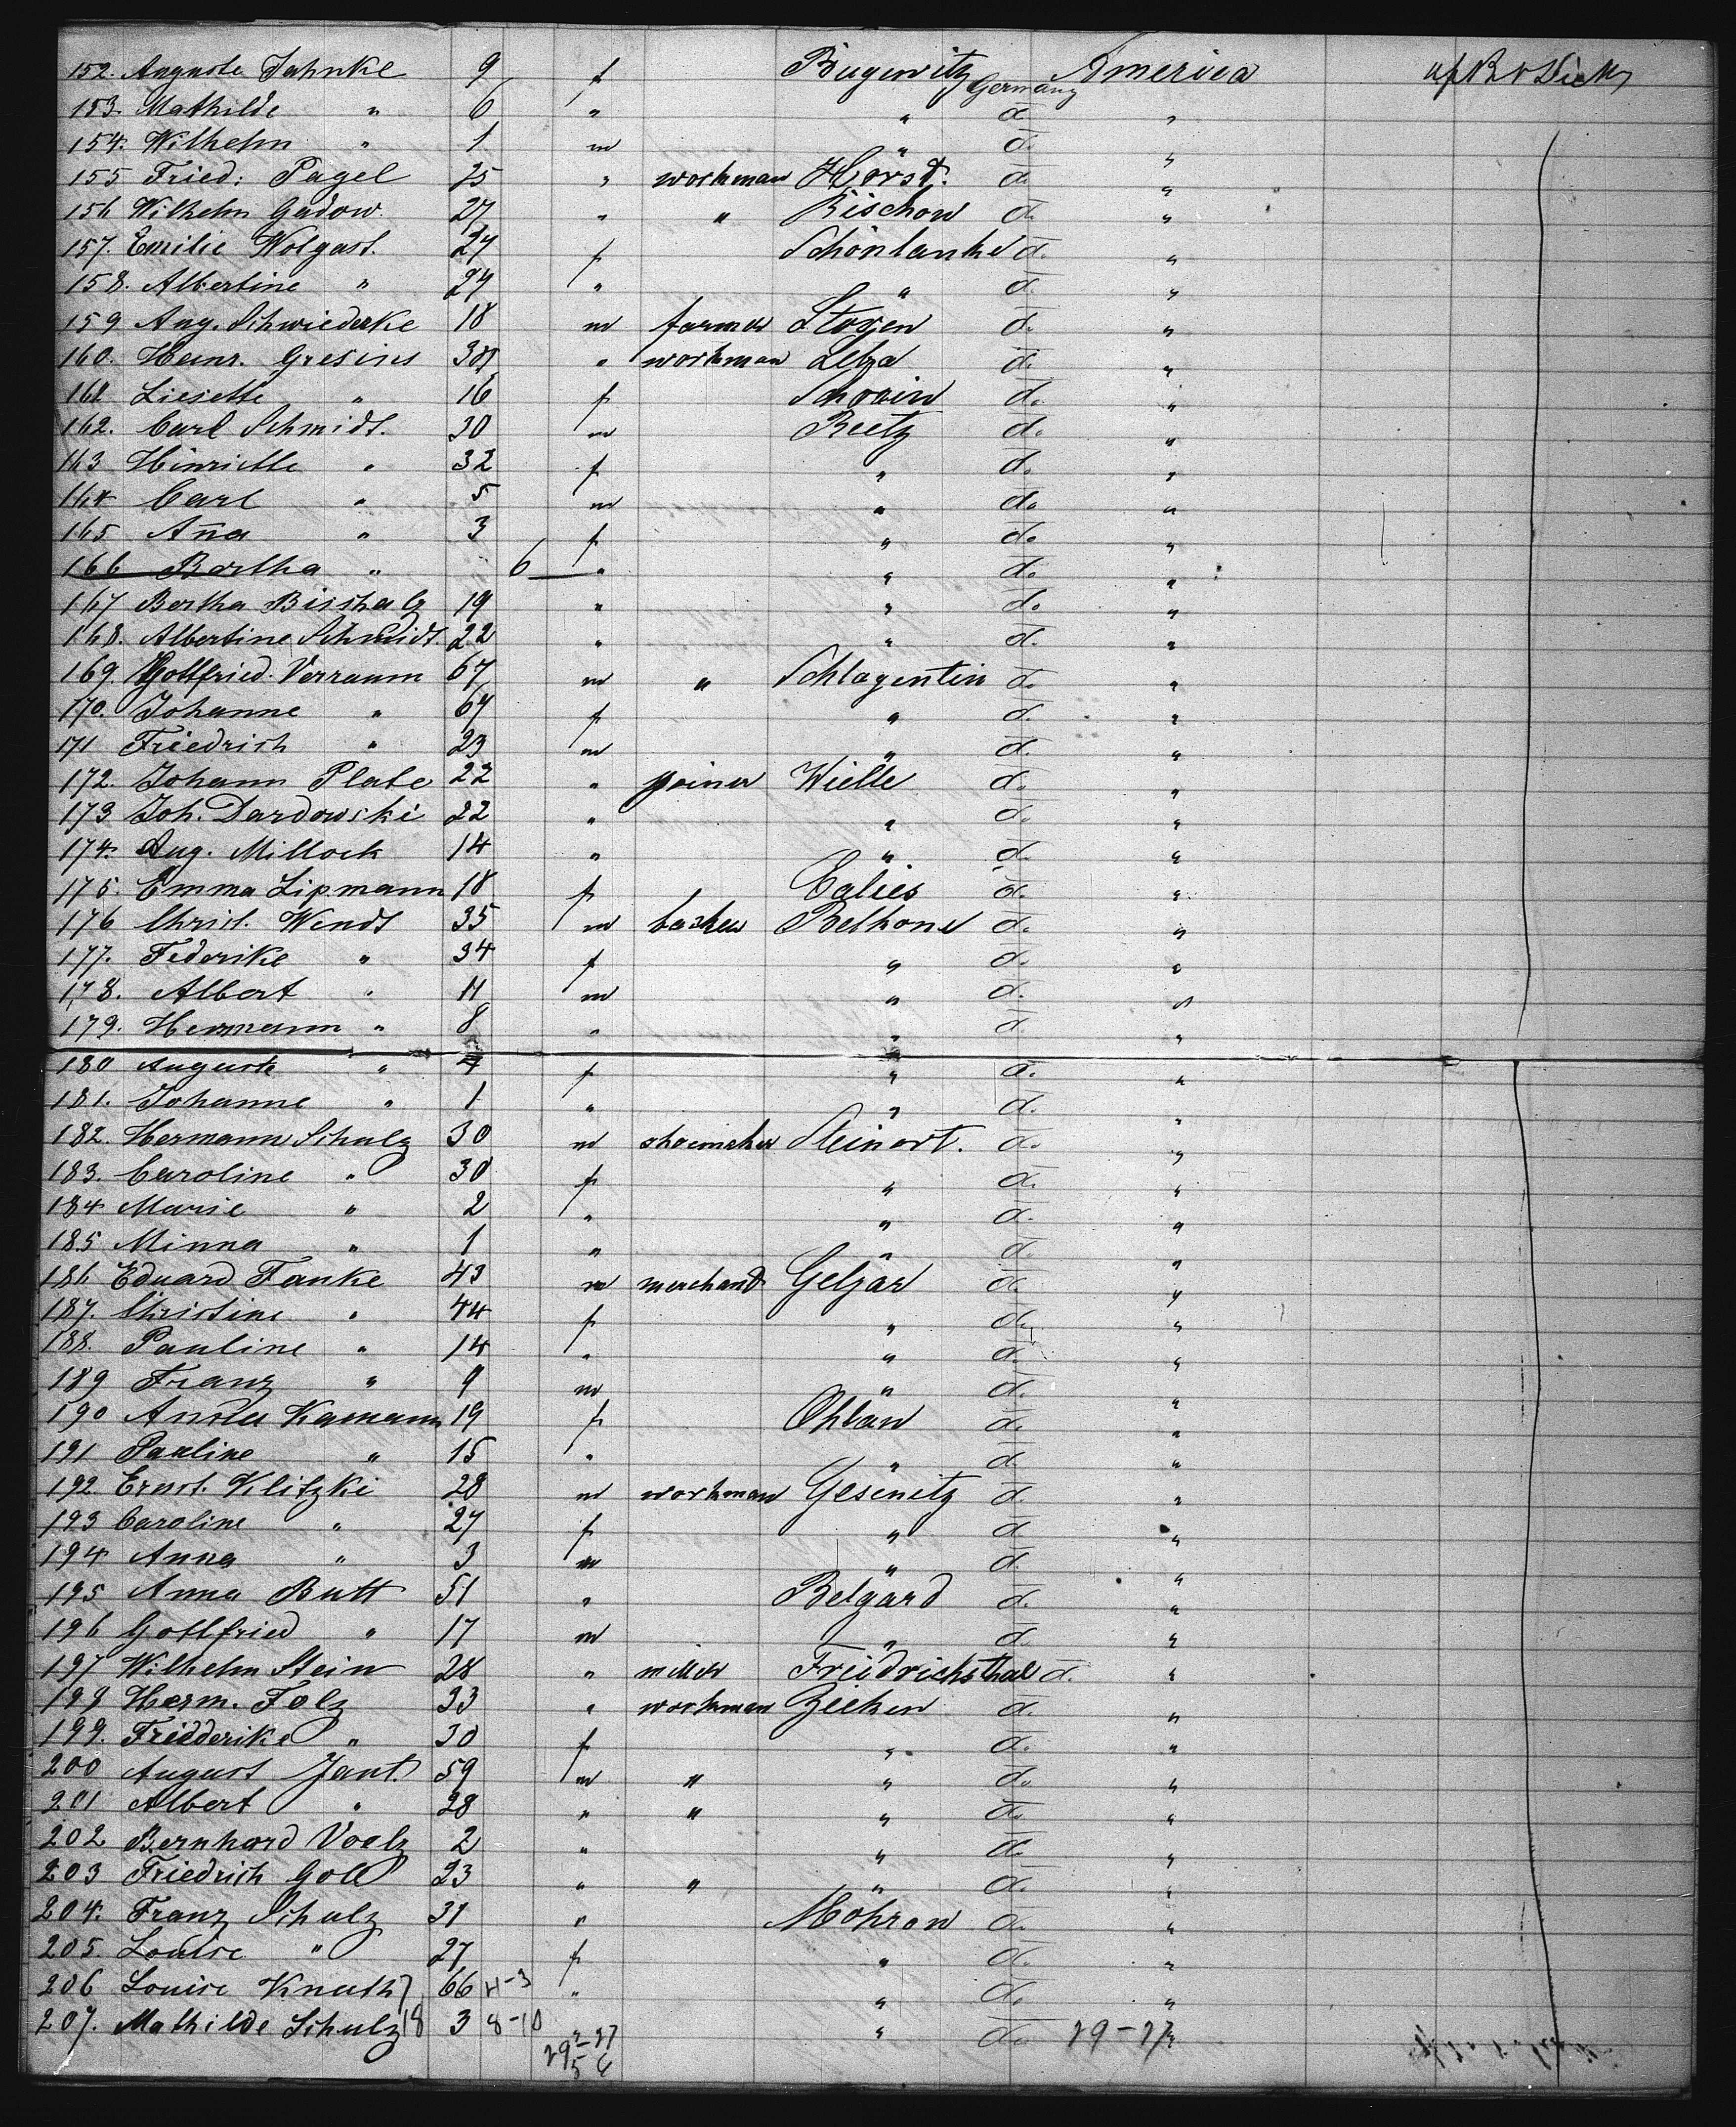 152. Auguste Jahnke 9 f Bugewitz Germany America
153. Mathilde " 6 " " do "
154. Wilhelm " 1 m " do. "
155 Fried: Pagel 25 " workman Horst. do. "
156 Wilhelm Gadow. 27 " " Bischow do. "
157. Emilie Wolgast. 27 f Schönlanke do. "
158. Albertine " 24 " " do. "
159 Aug. Schwiederke 18 m farmer Stojen do. "
160. Heinr. Gresins " workman Leba do. "
161 Liesette " 16 f do. "
162. Carl Schmidt. 30 m Reetz do. "
163 Hinriette " 32 f " do. "
164 Carl " 5 m " do "
165 Aña " 3 f " do "
166 Bertha " 6 " " do "
167 Bertha 19 " " do "
168. Albertine Schmidt. 22 " " do. "
169. Gottfried. Verraum 67 m " Schlagentin do. "
170. Johanne " 64 f " do. "
171 Friedrich " 23 m " do. "
172. Johann Plate 22 " joiner Wielle do. "
173 Joh. Dardowski 22 " " do. "
174. Aug. Millock 14 " " do. "
175. Emma Lipmann 18 f Calies do. "
176 Christ. Wendt 35 m Belkone do. "
177. Federike " 34 f " do. "
178. Albert " 11 m " do. "
179. Hermann " 8 " " do "
180 Auguste " 4 f " do. "
181. Johanne " 1 " " do. "
182. Hermann Schulz 30 m shoemaker Steinort. do. "
183. Caroline " 30 f " do. "
184 Marie " 2 " " do. "
185 Minna " 1 " " do. "
186 Eduard Fanke 43 m merchand Geljar do. "
187. Christine " 44 f " do. "
188. Pauline " 14 " " do. "
189 Franz " 9 m " do. "
190 Kamann 19 f Ohlau do. "
191 Pauline " 15 " " do. "
192 Ernst. Klitzki 28 m workman Gesenitz do. "
193 Caroline " 27 f " do "
194 Anna " 3 m " do. "
195 Anna Butt 51 " Belgard do. "
196 Gottfried " 17 m " do. "
197 Wilhelm Stein 28 " miller Friedrichsthal do. "
198 Herm. Folz 33 " workman Zieken do. "
199. Fridderike " 30 f " do. "
200 August Jant. 59 m " " do. "
201 Albert " 28 " " " do. "
202 Bernhard Voelz 2 " " do. "
203 Friedrich Goll 23 " " " do. "
204. Franz Schulz 31 " Mohron do. "
205. Louise " 27 f " do. "
206 Louise Knuth 7 66 4-3 " " do. "
207. Mathilde Schulz 18 3 8-10 " " do. 29-27 "
29 27
5 6